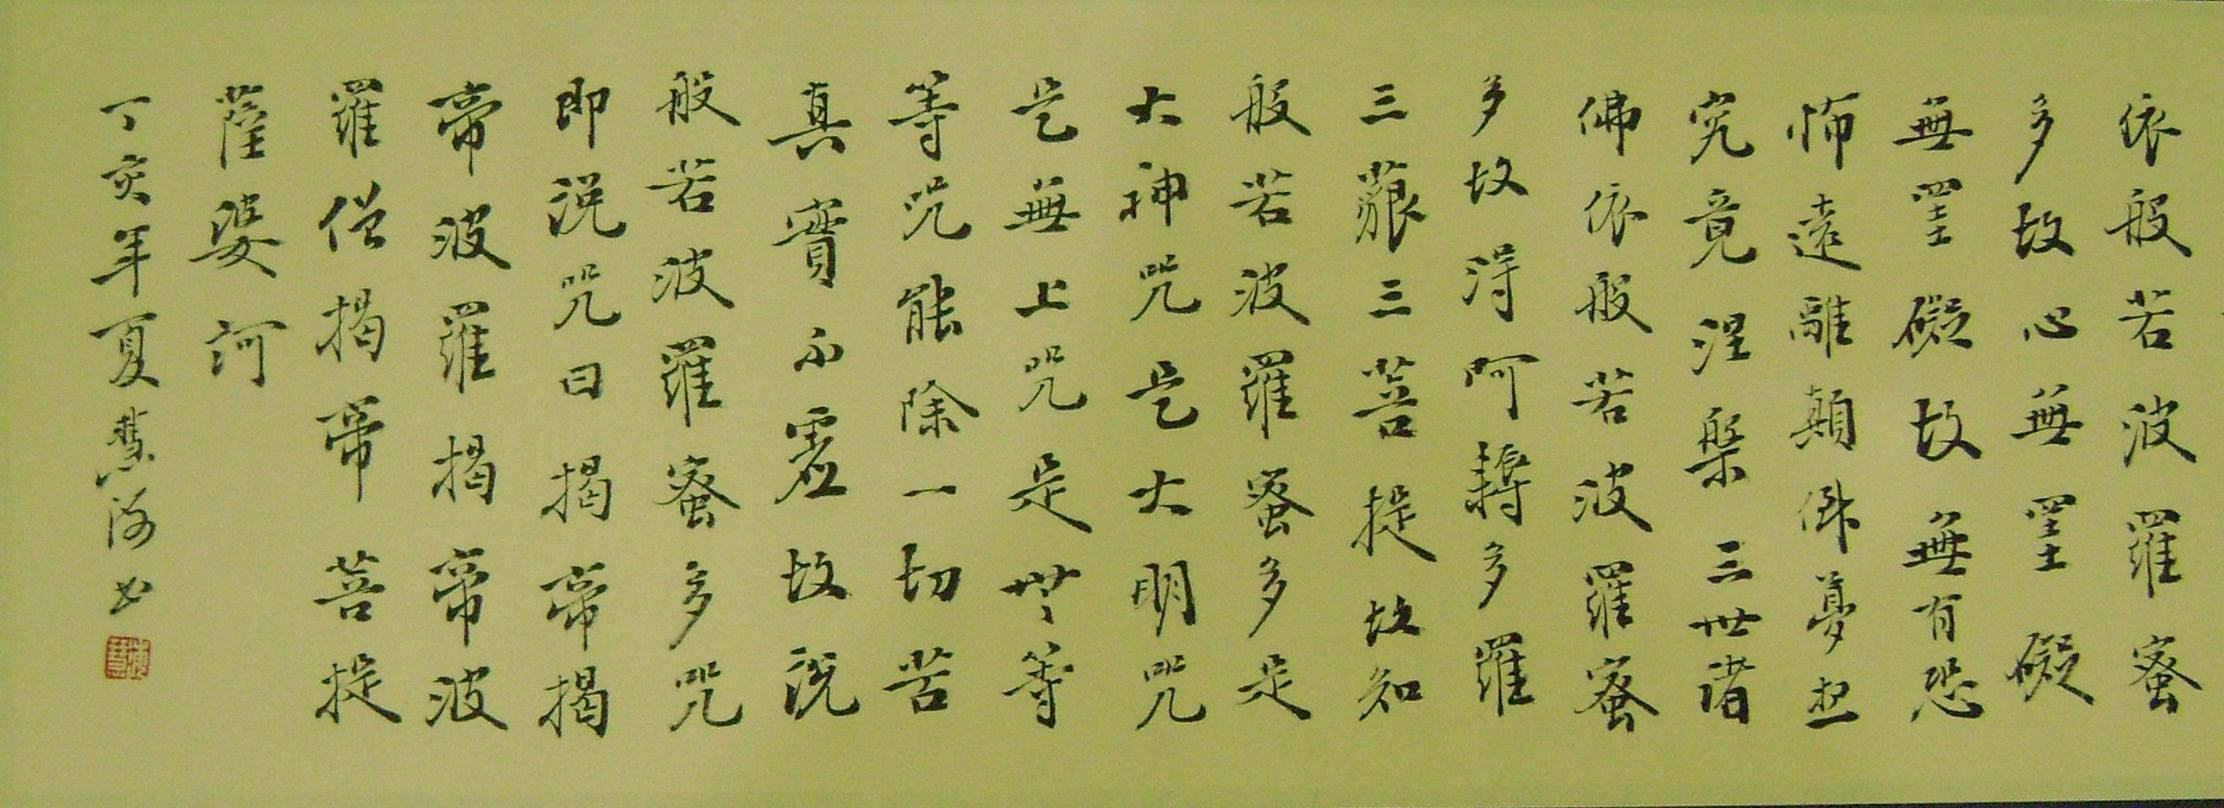 依般若波羅蜜
多故心無罣礙
無罣礙故無有恐
怖遠離顛倒夢想
究竟涅槃三世諸
佛依般若波羅蜜
多故得阿耨多羅
三藐三菩提故知
般若波羅蜜多是
大神咒是大明咒
是無上咒是無等
等咒能除一切苦
真實不虛故說
般若波羅蜜多咒
即說咒曰揭帝揭
帝波羅揭帝波
羅僧揭帝菩提
薩婆訶
丁亥年夏慧海书